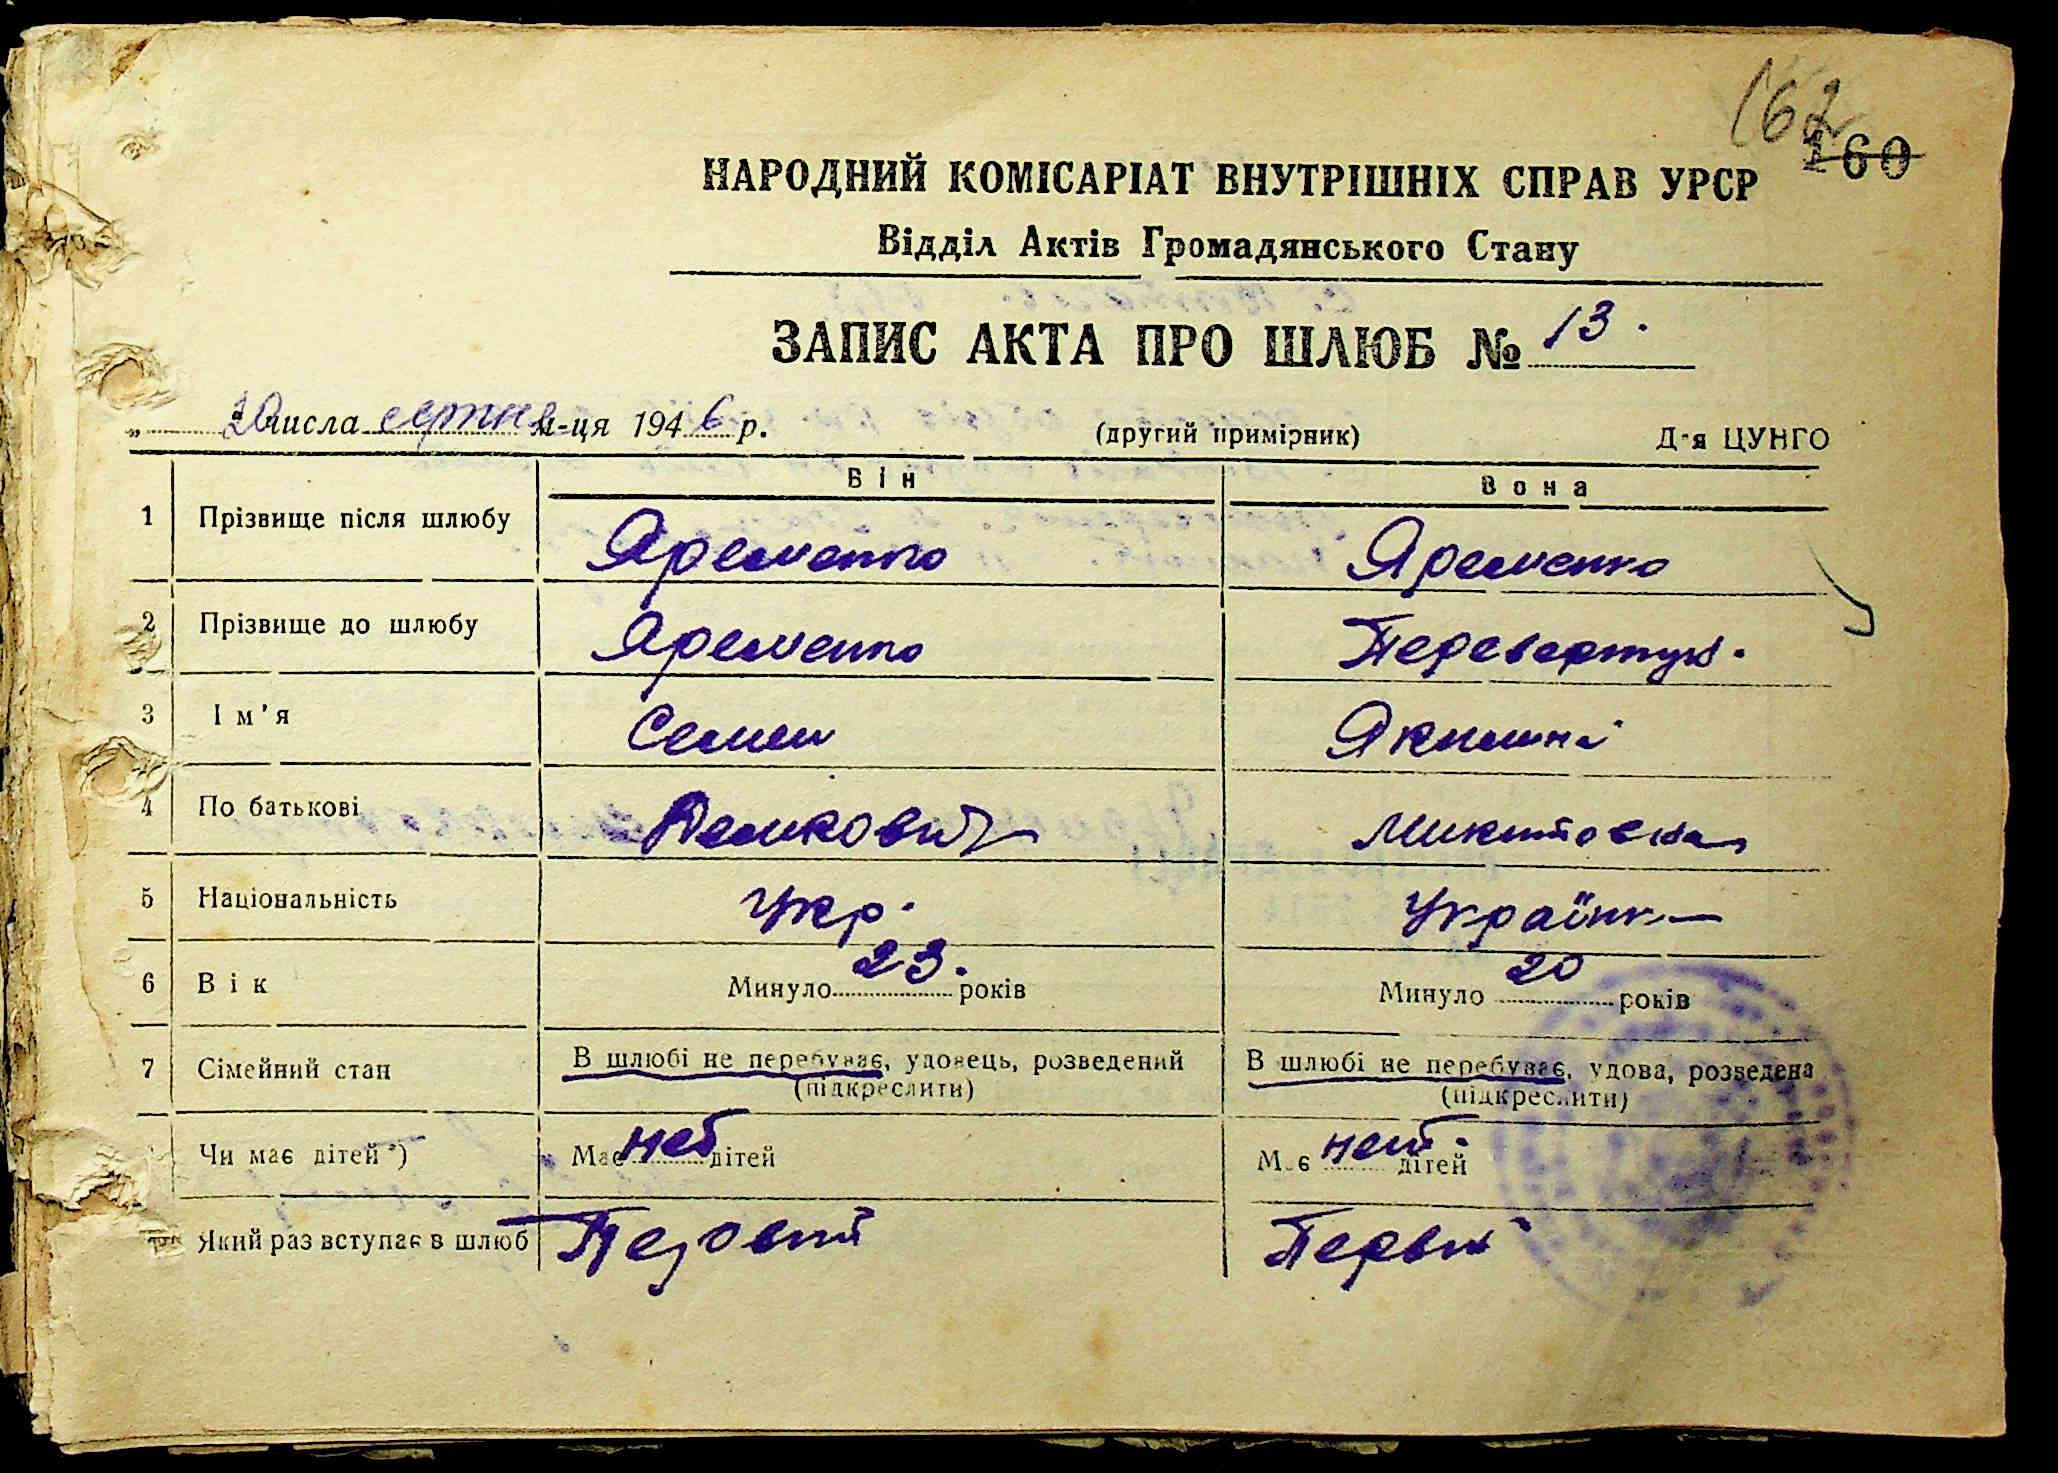 162
160
НАРОДНИЙ КОМІСАРІАТ ВНУТРІШНІХ СПРАВ УРСР
Відділ Актів Громадянського Стану
ЗАПИС АКТА ПРО ШЛЮБ № 13.
„ 20 числа серпня м-ця 1946 р. (другий примірник) Д-я ЦУНГО
Він Вона
1 Прізвище після шлюбу Яременко Яременко
2 Прізвище до шлюбу Яременко Перевертун.
3 Ім'я Семен
4 По батькові Демкович Микитовна
5 Національність Укр. Українк
6 Вік Минуло 23. років Минуло 20 років
7 Сімейний стан В шлюбі не перебуває, удовець, розведений В шлюбі не перебуває, удова, розведена
(підкреслити) (підкреслити)
Чи має дітей*) Має нет дітей Має нет. дітей
Який раз вступає в шлюб Первий Первий